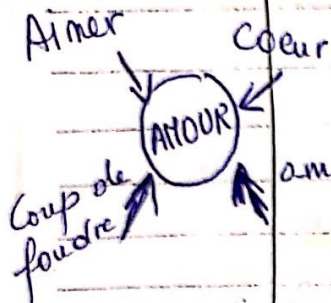 Aimer
Coeur
AMOUR
am
Coup de
foudre